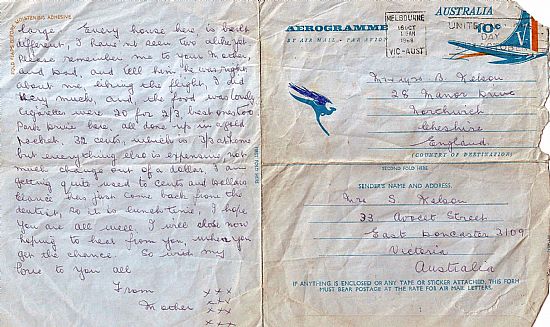 TO OPEN SLIT HERE
MOISTEN THIS ADHESIVE
large. Every house here, is built
different, I haven't seen two alike yet
Please remember me to your Mother,
and Dad, and tell him he was right
about me, liking the flight, I did
very much, and the food was lovely
Cigarettes were 20 for 2/3, best ones too
Park Drive here, all done up in a gold
packet. 32 cents, which is 3/3 at home
but everything else is expensive, not
much change out of a dollar. I am
getting quite used to cents and dollars
has just come back from the
dentist, so it is lunch time, I hope
you are all well, I will close now
hoping to hear from you, when you
get the chance. So with my
love to you all
From
Mother
x x x
x x x
x x x
x x
FIRST FOLD HERE
AUSTRALIA
AEROGRAMME
BY AIR MAIL · PAR AVION
MELBOURNE
1968
VIC-AUST
UNITED
DAY
10c
Mr & Mrs B. Kelson
28 Manor Drive
Northwich
Cheshire
England
(COUNTRY OF DESTINATION)
SECOND FOLD HERE
SENDER'S NAME AND ADDRESS:
Mrs S. Kelson
33 Avocet Street
East Doncaster 3109
Victoria
Australia
IF ANYTHING IS ENCLOSED OR ANY TAPE OR STICKER ATTACHED, THIS FORM
MUST BEAR POSTAGE AT THE RATE FOR AIR MAIL LETTERS.